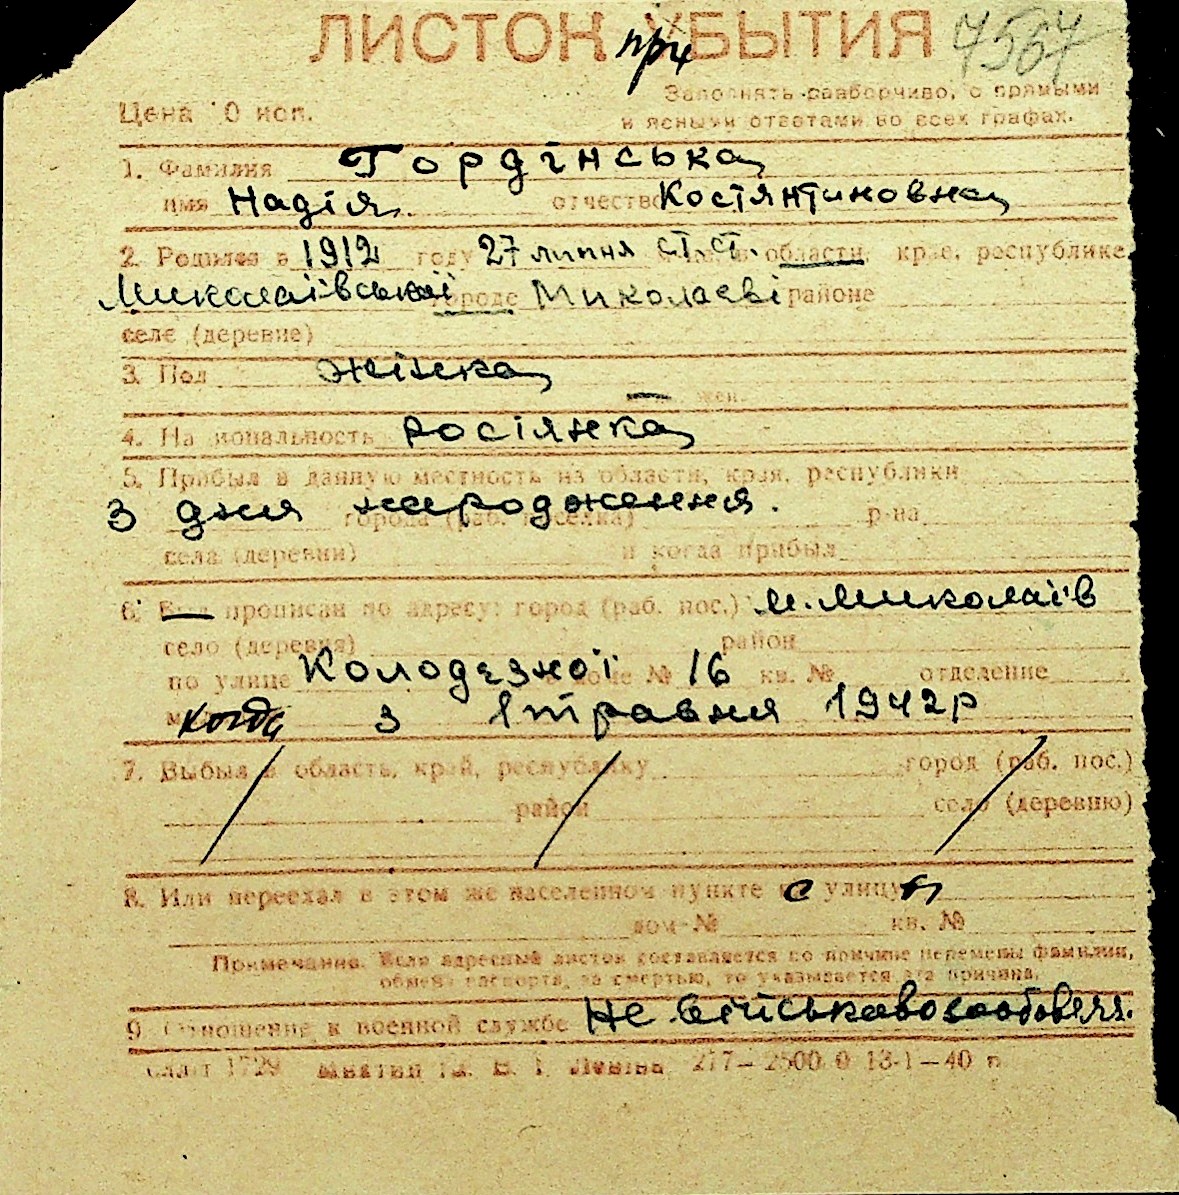 ЛИСТОК при УБЫТИЯ 7567
Цена 10 коп.
Заполнять разборчиво, с прямыми
и ясными ответами во всех графах.
1. Фамилия Гордінська
имя Надія отчество Костянтиновна
2. Родился в 1912 году 27 липня ст. ст. в области, крае, республике
Миколаївській городе Миколаєві районе
селе (деревне)
3. Пол жінка
жен.
4. Национальность росіянка
5. Прибыл в данную местность из области, края, республики
З дня народження.
города (раб. поселка) р-на
села (деревни) и когда прибыл
6. Был прописан по адресу: город (раб. пос.) м. Миколаїв
село (деревня) район
по улице Колодязної доме № 16 кв. № отделение
когда з 1 травня 1942 р
7. Выбыл в область, край, республику город (раб. пос.)
район село (деревню)
8. Или переехал в этом же населенном пункте с улицы
дом № кв. №
Примечание. Если адресный листок составляется по причине перемены фамилии,
обмена паспорта, за смертью, то указывается эта причина.
9. Отношение к военной службе Не військовозообовяз.
1729 277—2500 0 13-1—40 г.